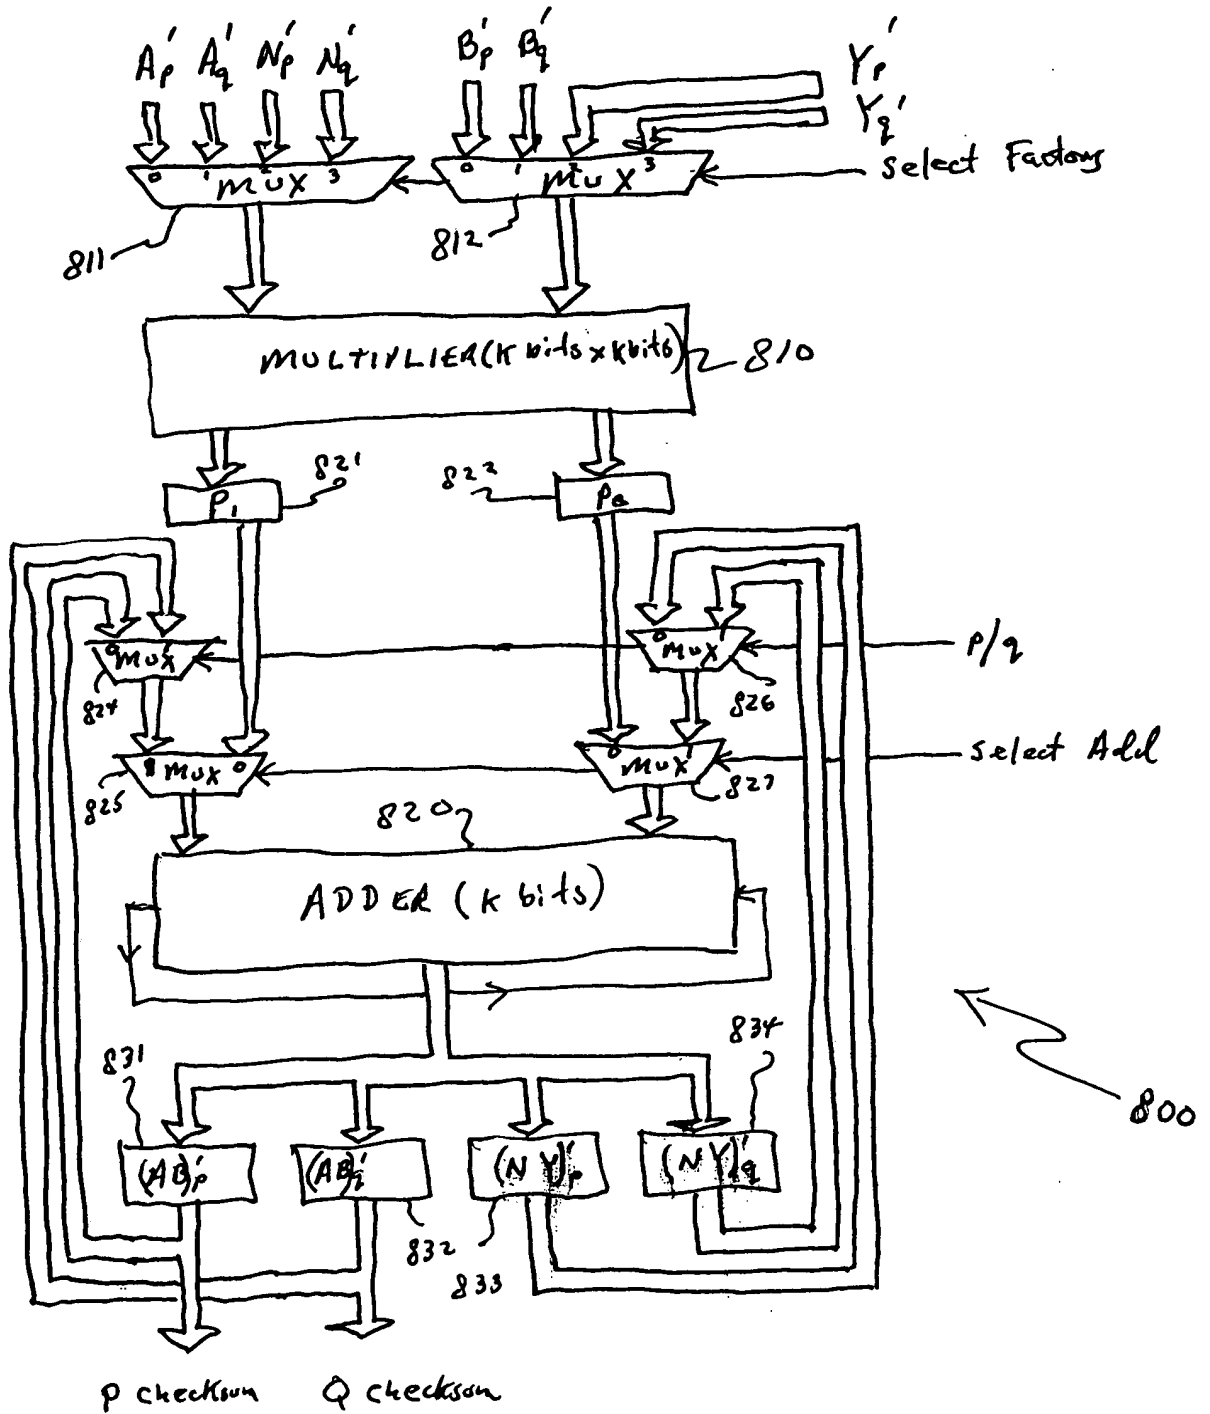 A'p A'q N'p N'q B'p B'q Y'p
Y'q
select Factors
0 1 2 MUX 3
0 1 2 MUX 3
811
812
MULTIPLIER (K bits x K bits)
810
821
822
P1
P2
0 MUX 1
0 MUX 1
P/q
824
826
1 MUX 0
0 MUX 1
select Add
825
827
820
ADDER (K bits)
831
834
800
(AB)'p
(AB)'q
(NY)'p
(NY)'q
832
833
P checksum
Q checksum